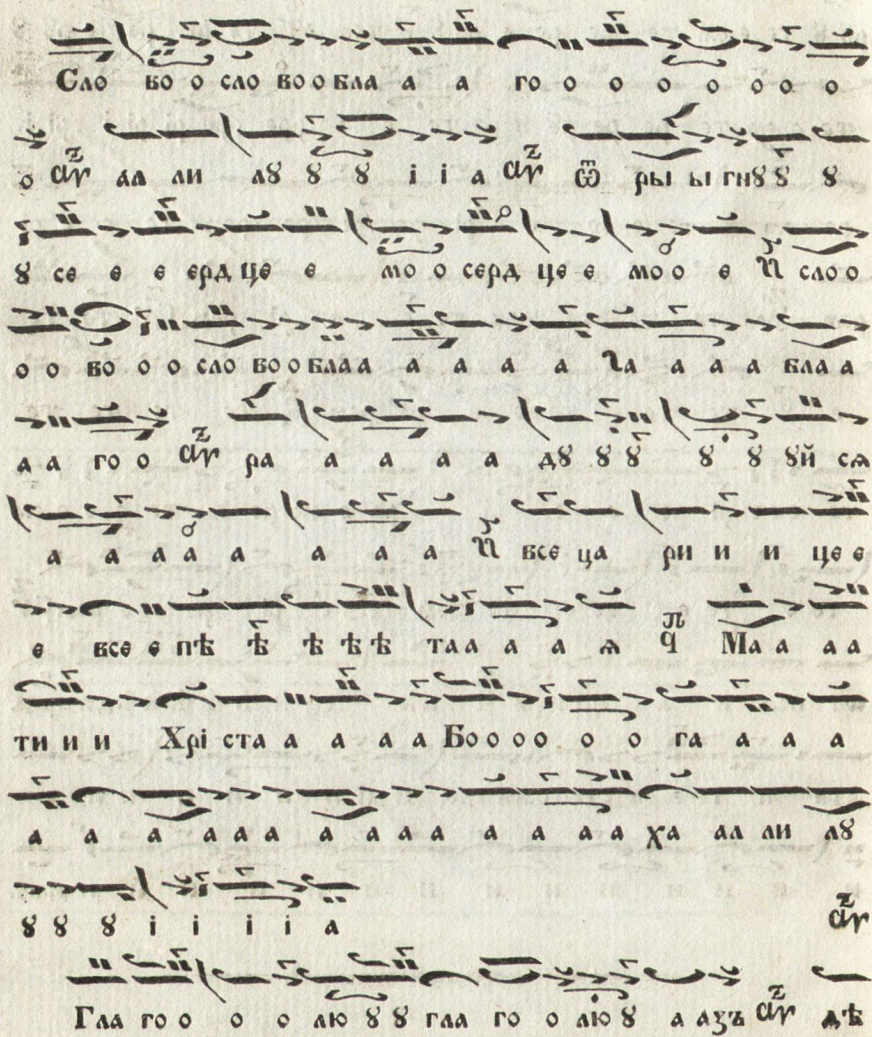 Сло во о сло во о бла а а го о о о о о о о
о ал ли лꙋ ꙋ ꙋ і і а Ѿ ры ы гнꙋ ꙋ ꙋ
ꙋ се е е ерд це е мо о серд це е мо о е сло о
о о во о о сло во о бла а а а а а ла а а а бла а
а а го о ра а а а а дꙋ ꙋ ꙋ ꙋ ꙋ ꙋй сѧ
а а а а а а а а все ца ри и и це е
е все е пѣ ѣ ѣ ѣ ѣ та а а а ѧ Ма а а а
ти и и Хрі ста а а а а Бо о о о о о га а а а
а а а а а а а а а а а а а а ха ал ли лꙋ
ꙋ ꙋ ꙋ і і і і а
Гла го о о о лю ꙋ ꙋ гла го о лю ꙋ а азъ дѣ